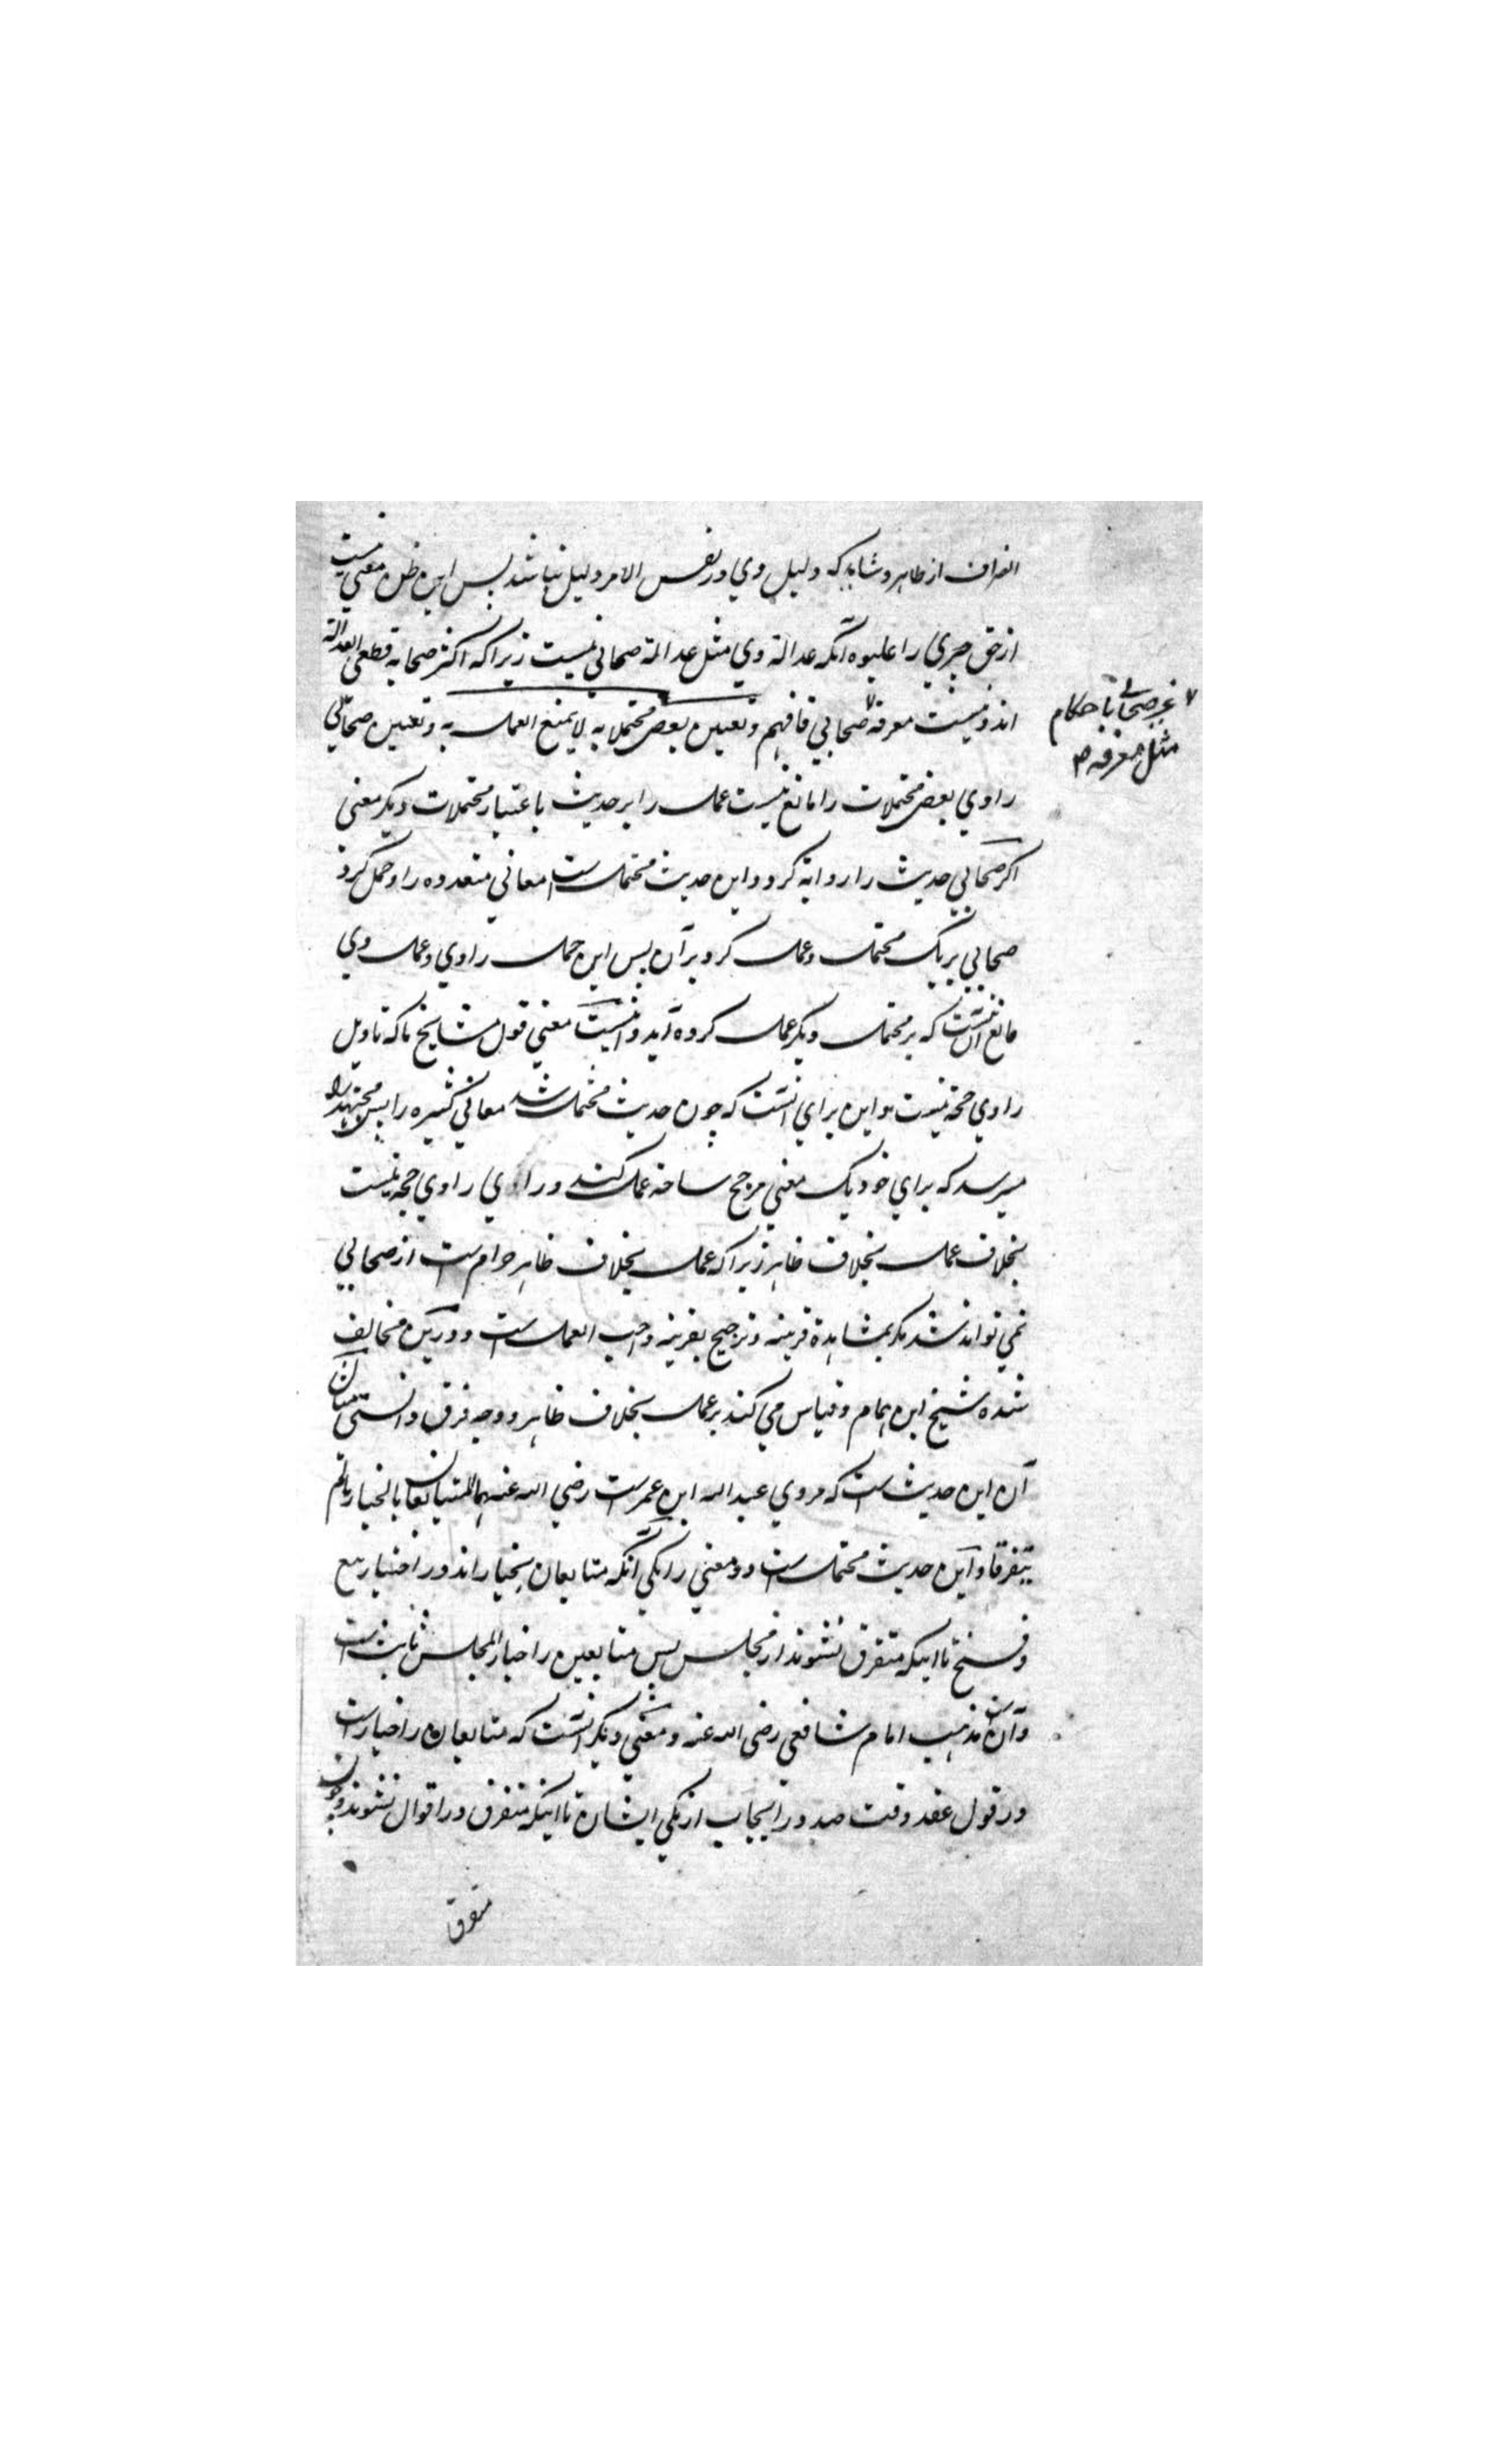 انصراف از ظاهر و شاید که دلیل وی در نفس الامر دلیل نباشد پس این ظن مغنی نیست
از حق چیزی را علاوه آنکه عدالة وی مثل عدالة صحابی نیست زیرا که اکثر صحابه قطعی العدالة
اند و نیست معرفة صحابی فافهم و تعیین بعض محتملاته لا یمنع العمل به و تعیین صحابی
غیر صحابی باحکام
مثل معرفه
راوی بعض محتملات را مانع نیست عمل را بر حدیث باعتبار محتملات دیگر معنی
اگر صحابی حدیث را روایة کرد و این حدیث محتمل است معانی متعدده را و حمل کرد
صحابی بر یک محتمل و عمل کرد بر آن پس این حمل راوی و عمل وی
مانع آن نیست که بر محتمل دیگر عمل کرده آید و اینست معنی قول مشایخ ما که تاویل
راوی حجة نیست و این برای آنست که چون حدیث محتمل شد معانی کثیره را پس مجتهد را
میرسد که برای خود یک معنی مرجح ساخته عمل کند و رای راوی حجة نیست
بخلاف عمل بخلاف ظاهر زیرا که عمل بخلاف ظاهر حرام است از صحابی
نمی تواند شد مگر بمشاهدة قرینه و ترجیح بقرینه واجب العمل است و درین مخالف
شده شیخ ابن همام و قیاس می کند بر عمل بخلاف ظاهر و وجه فرق دانستی مثال
آن این حدیث است که مروی عبد الله ابن عمر است رضی الله عنهما المتبایعان بالخیار ما لم
یتفرقا و این حدیث محتمل است دو معنی را یکی آنکه متبایعان بخیار اند در اختیار بیع
و فسخ تا اینکه متفرق نشوند از مجلس پس متبایعین را خیار المجلس ثابت است
و آن مذهب امام شافعی رضی الله عنه و معنی دیگر آنست که متبایعان را خیار است
در قول عقد وقت صدور ایجاب از یکی ایشان تا اینکه متفرق در اقوال نشوند و چون
متفرق